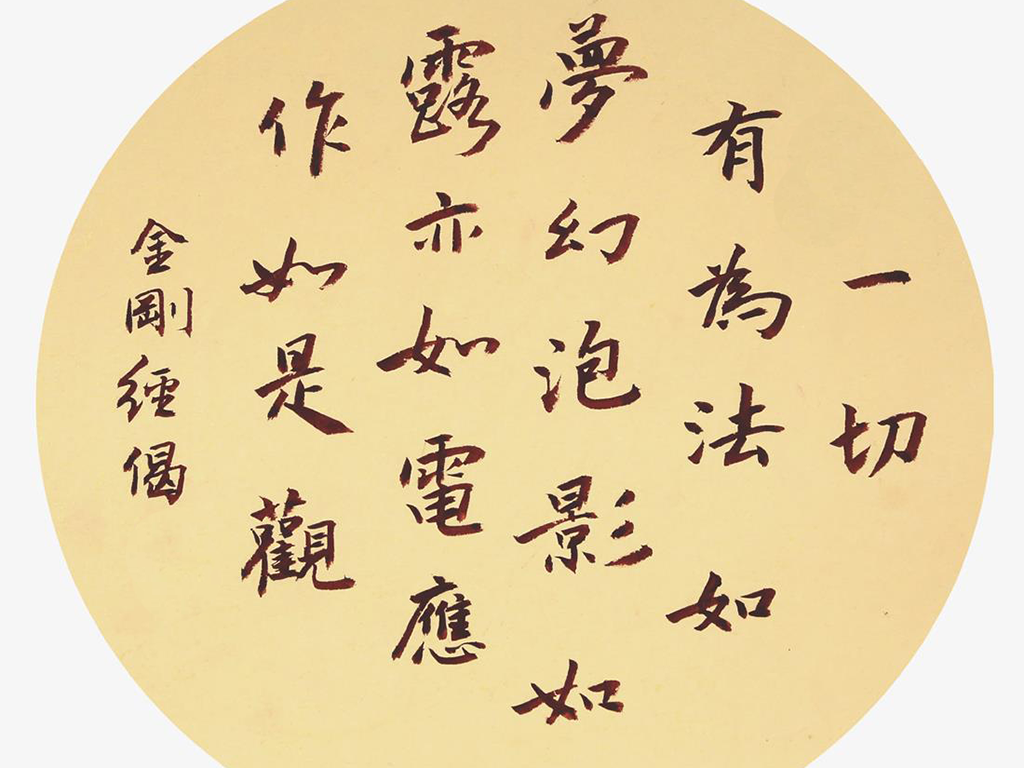 一切
有為法如
夢幻泡影如
露亦如電應
作如是觀
金剛經偈